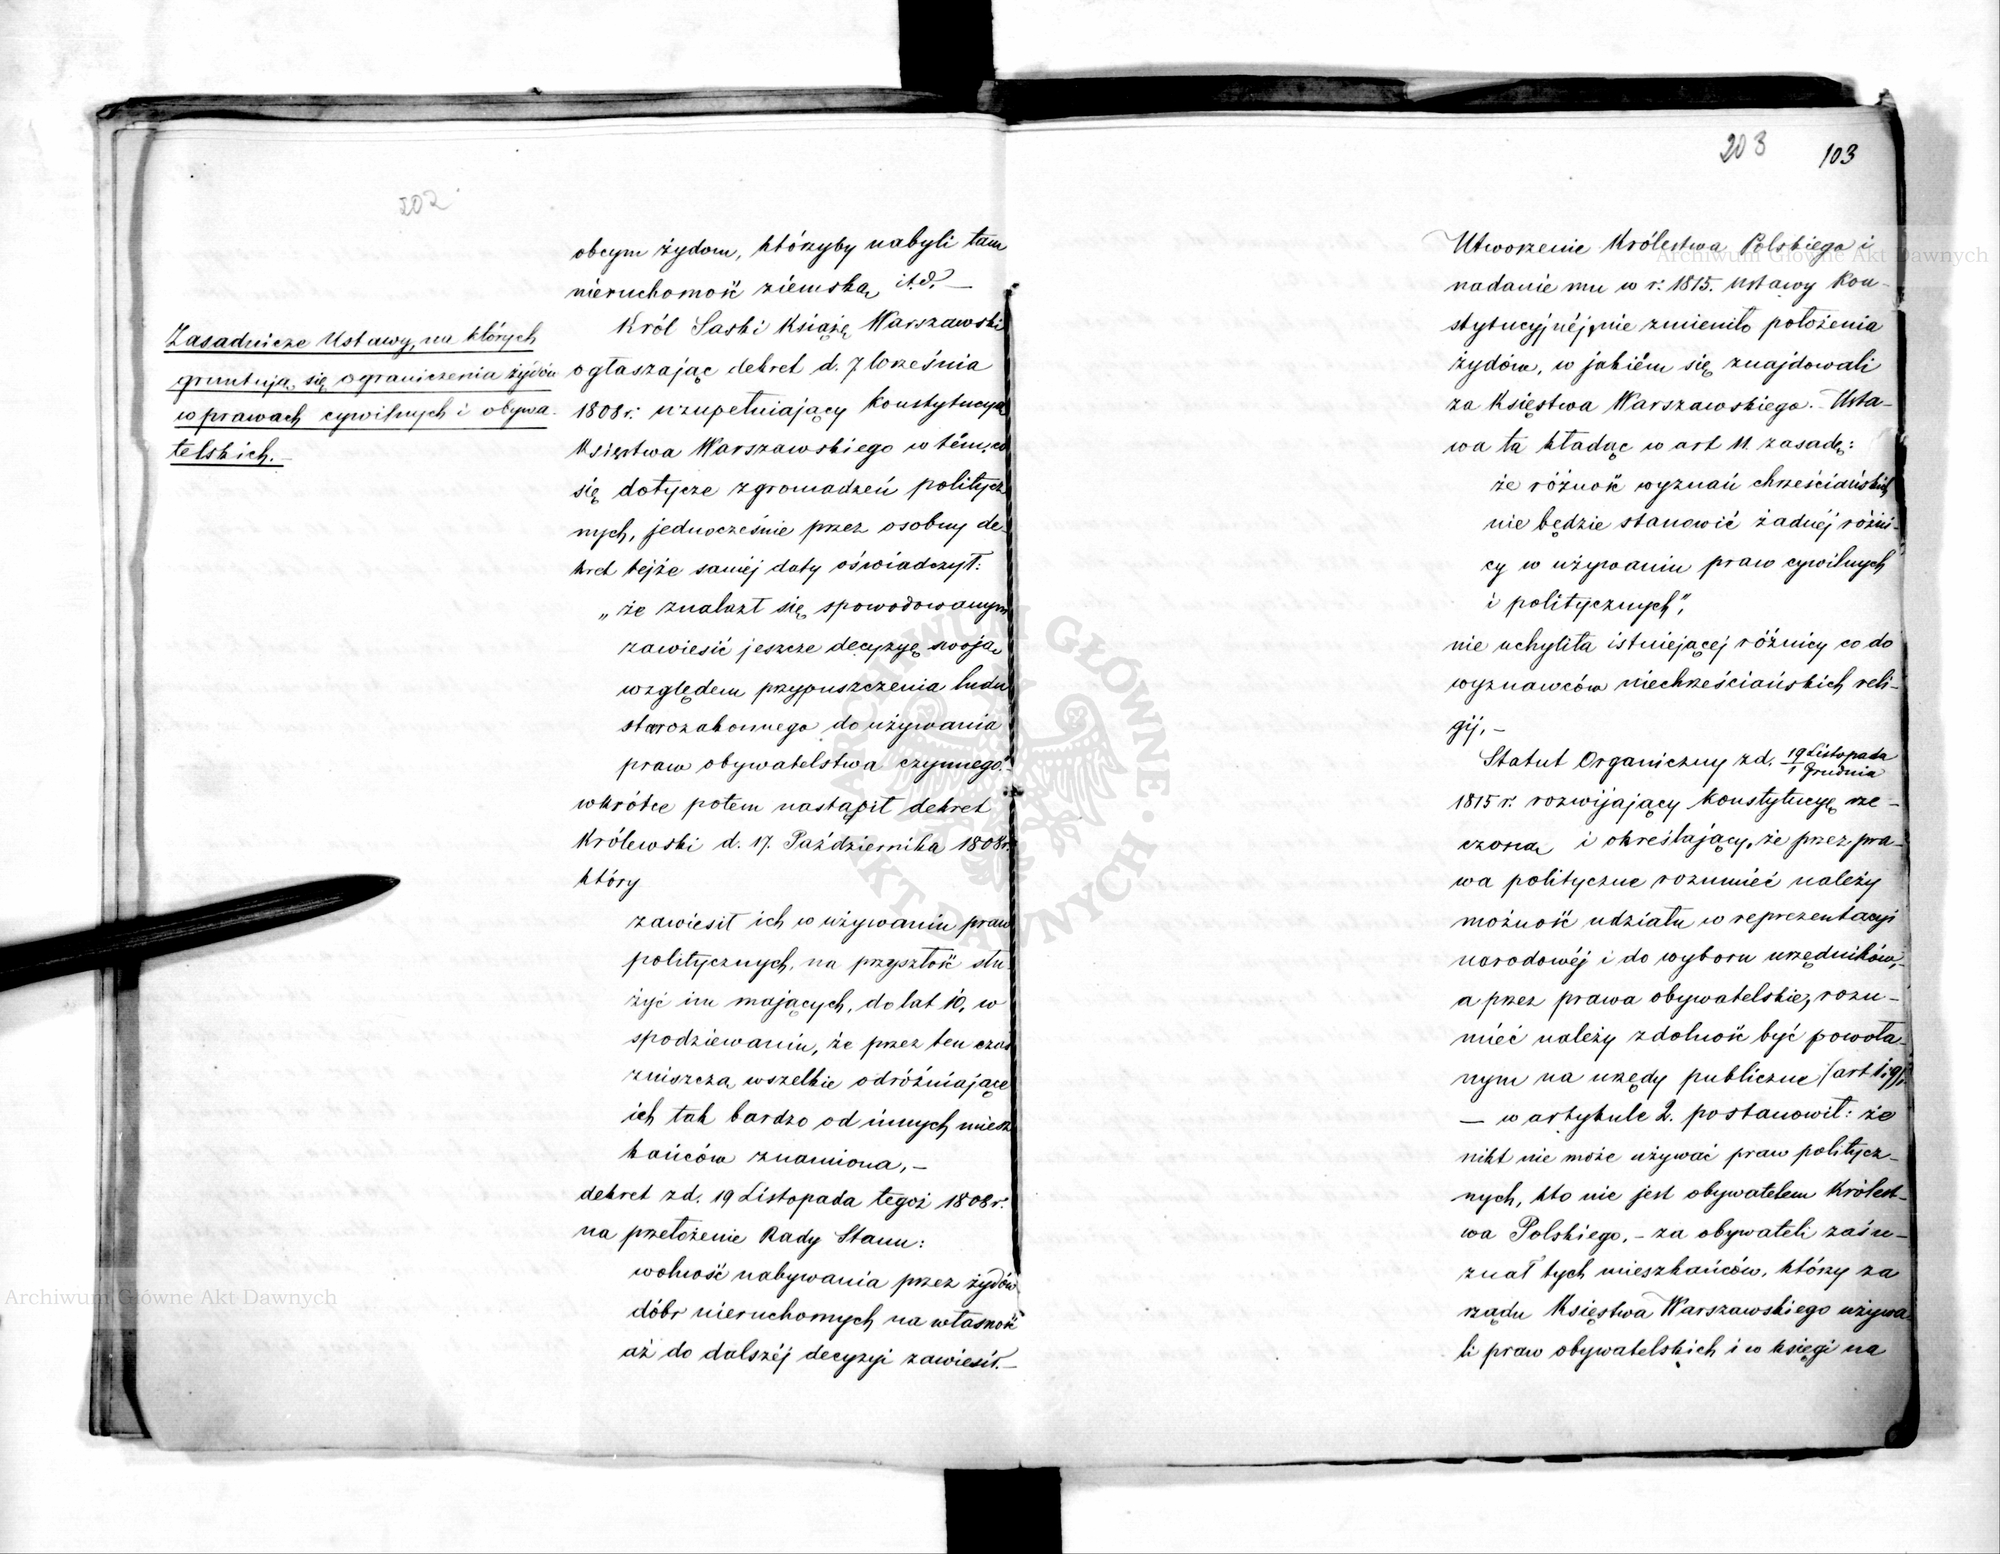 202
Zasadnicze Ustawy, na których
gruntują się ograniczenia żydów
w prawach cywilnych i obywa-
telskich.
obcym żydom, którzyby nabyli tam
nieruchomość ziemską itd. —
Król Saski Książę Warszawski
ogłaszając dekret d. 7 Września
1808 r. uzupełniający Konstytucyą
Księstwa Warszawskiego w tém, co
się dotycze zgromadzeń politycz
nych, jednocześnie przez osobny de-
kret tejże saméj daty oświadczył:
„że znalazł się spowodowanym
zawiesić jeszcze decyzyę swoją
względem przypuszczenia ludu
starozakonnego do używania
praw obywatelstwa czynnego."-
wkrótce potem nastąpił dekret
Królewski d. 17. Października 1808 r.
który
zawiesił ich w używaniu praw
politycznych, na przyszłość słu
żyć im mających, do lat 10, w
spodziewaniu, że przez ten czas
zniszczą wszelkie odróżniające
ich tak bardzo od innych miesz
kańców znamiona, —
dekret z d. 19 Listopada tegoż 1808 r.
na przełożenie Rady Stanu:
wolność nabywania przez żydów
dóbr nieruchomych na własność
aż do dalszéj decyzyi zawiesił. —
203
103
Utworzenie Królestwa Polskiego i
nadanie mu w r. 1815. Ustawy Kon-
stytucyjnéj, nie zmieniło położenia
żydów, w jakiém się znajdowali
za Księstwa Warszawskiego. – Usta-
wa ta kładąc w art 11. zasadę:
że różność wyznań chrześciańskich
nie będzie stanowić żadnéj różni-
cy w używaniu praw cywilnych
i politycznych",
nie uchyliła istniejącej różnicy co do
wyznawców niechrześciańskich reli-
gij. –
Statut Organiczny z d. 19 Listopada
1 Grudnia
1815 r. rozwijający Konstytucyę rze-
czoną i określający, że przez pra-
wa polityczne rozumieć należy
możność udziału w reprezentacyi
narodowéj i do wyboru urzędników,-
a przez prawa obywatelskie, rozu-
mieć należy zdolność być powoła-
nym na urzędy publiczne (art 1. 9).
— w artykule 2. postanowił: że
nikt nie może używać praw politycz-
nych, kto nie jest obywatelem Królest-
wa Polskiego. – za obywateli zaś u-
znał tych mieszkańców, którzy za
rządu Księstwa Warszawskiego używa
li praw obywatelskich i w księgi na
Archiwum Główne Akt Dawnych
Archiwum Główne Akt Dawnych
ARCHIWUM GŁÓWNE AKT DAWNYCH